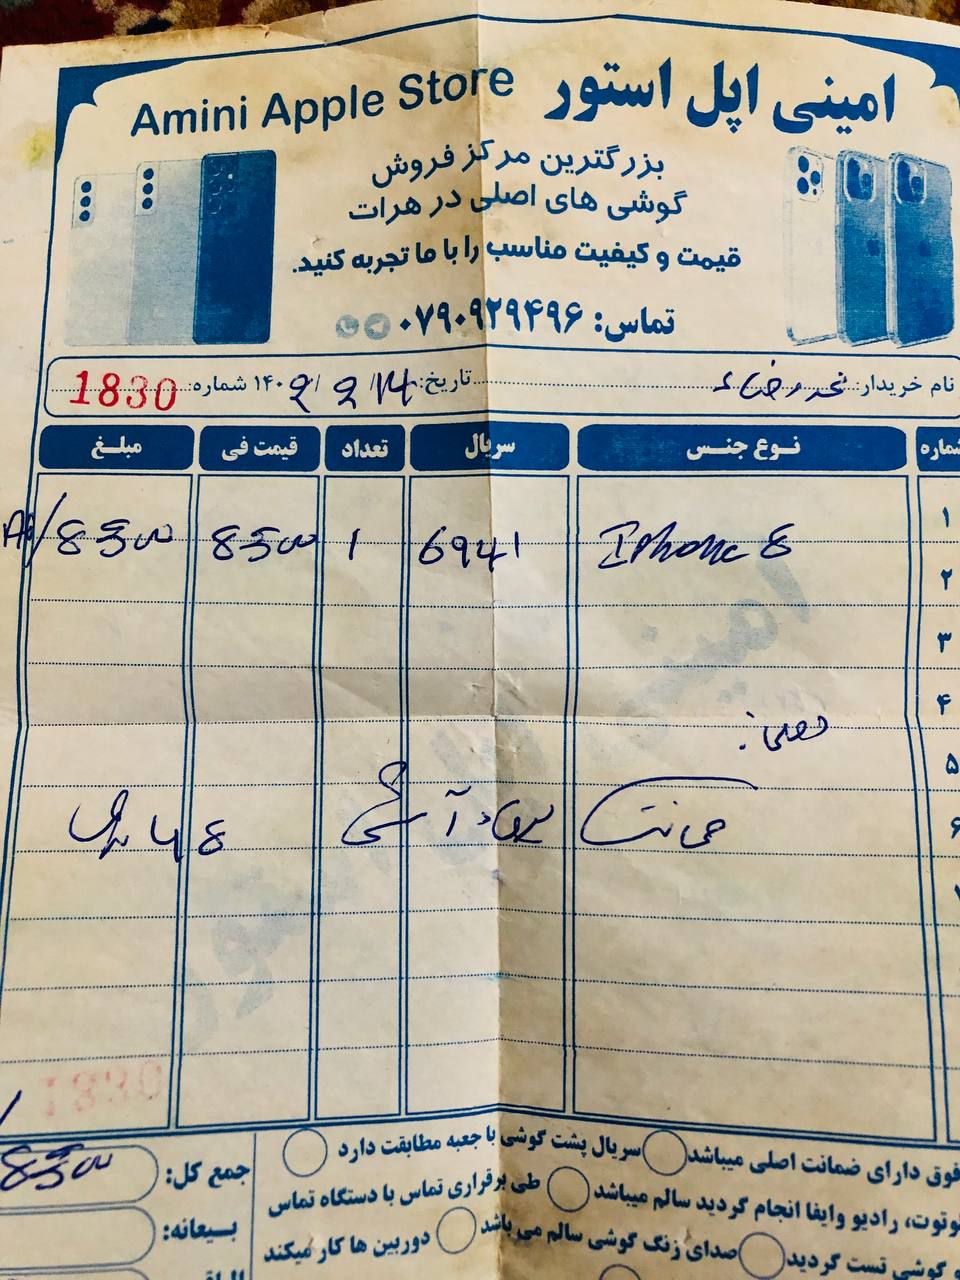 Amini Apple Store امینی اپل استور
بزرگترین مرکز فروش
گوشی های اصلی در هرات
قیمت و کیفیت مناسب را با ما تجربه کنید.
تماس: ۰۷۹۰۹۲۹۴۹۶
نام خریدار: تاریخ: ۱۴۰ شماره: 1830
شماره نوع جنس سریال تعداد قیمت فی مبلغ
۱ Iphone 8 6941 1 8500 8500
۲
۳
۴
۵
۶ ضمانت
۷
1830
فوق دارای ضمانت اصلی میباشد سریال پشت گوشی با جعبه مطابقت دارد
جمع کل: 8500
رادیو وایفا انجام گردید سالم میباشد طی برقراری تماس با دستگاه تماس
بیعانه:
گوشی تست گردید صدای زنگ گوشی سالم می باشد دوربین ها کار میکند